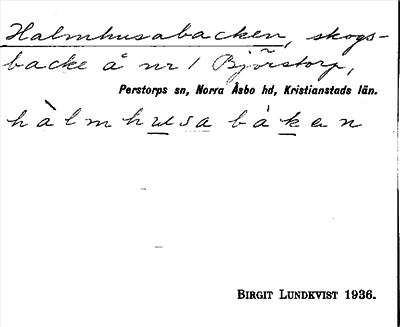 Halmhusabacken, skogs-
backe å nr 1 Björstorp,
Perstorps sn, Norra Åsbo hd, Kristianstads län.
hàlmhusabákan
BIRGIT LUNDKVIST 1936.